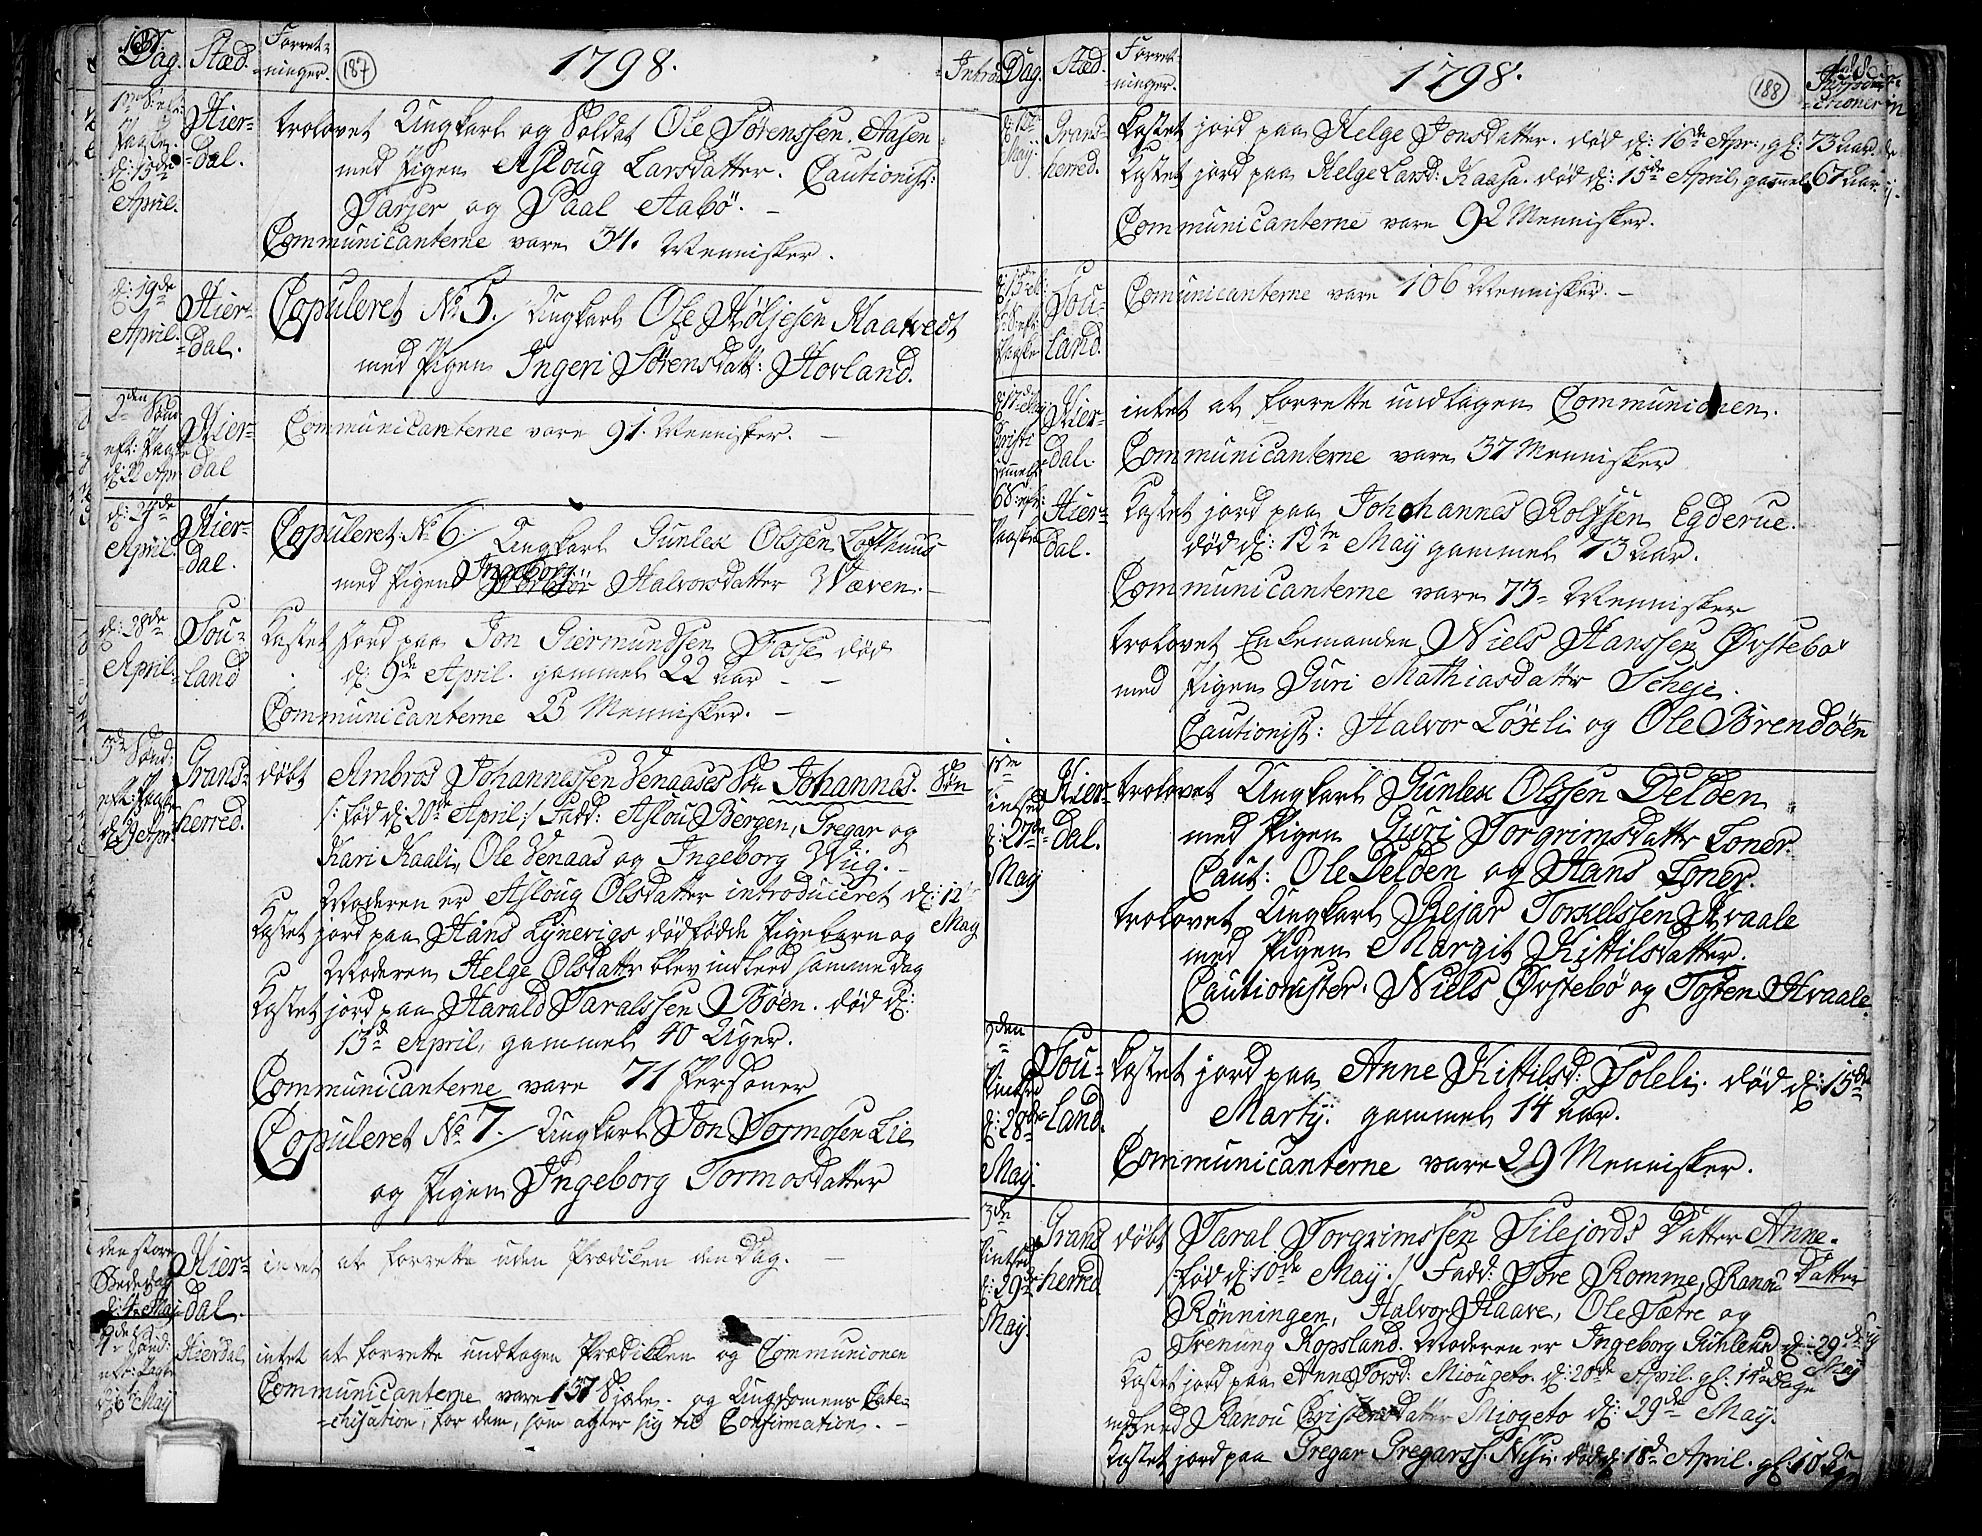 Dag. Stæd. Forret-
-ninger. 187 1798. Intro
d: 15de
April. Hier-
-dal. trolovet Ungkarl og Soldat Ole Sørenssen Aasen
med Pigen Asloug Larsdatter. Cautionist:
Tarjer og Paal Aabö. -
Communicanterne vare 34. Mennisker.
d: 19de
April. Hier-
-dal. Copuleret No 5./ Ungkarl Ole Höljesen Kaatvedt
med Pigen Ingeri Sørensdatt: Hovland.
2den Sönd
eft: Paaske
d: 22 Apr Hier-
dal Communicanterne vare 91. Mennisker. -
d: 24de
April. Hier-
-dal. Copuleret No 6./ Ungkarl Gunlex Olssen Lofthuus
med Pigen Ingeborg Halvorsdatter Wæven. -
d: 28de
April. Sou-
-land Kastet Jord paa Jon Giermundsen Fosse død
d: 9de April. gammel 22 aar - -
Communicanterne 25 Mennisker. -
3de Sönd:
eft: Paaske
d: 29 Apr: Grans-
herred. döbt Ambros Johannessen Venaases Sön Johannes. Sön
/: fød d: 20de April :/ Fadd: Aslou Bergen, Gregar og
Kari Kaali, Ole Venaas og Ingeborg Wiig. -
Moderen er Aslou̇g Olsdatter introduceret d: 12
May
Kastet jord paa Hans Lynevigs dödfödde Pigebarn og
Moderen Helge Olsdattr blev indleed samme dag
Kastet jord paa Harald Taralssen Böen. død d:
13d April, gammel 40 Uger.
Communicanterne vare 71 Personer
Copuleret No 7./ Ungkarl Jon Tormosen Lie
og Pigen Ingeborg Tormosdatter
den store
Bededag
d: 4 May Hier-
dal. intet at forrette uden Prædiken den Dag. -
4de Sönd:
d: 6te May Hierdal intet at forrette undtagen Prædikken og Communionen
Communicanterne vare 137 Sjæle. og Ungdomens Cate-
-chisation, for dem, som agter sig til Confirmation. -
Dag. Stæd. Forret-
-ninger. 1798. 188
May: Grans-
herred. Kastet jord paa Helge Jonsdatter. død d: 16de Apr:, gl: 73 aar.
Kastet jord paa Helge Larsd: Kaasa. død d: 15de April, gammel 67 Aar
Communicanterne vare 92 Mennisker.
Sou-
land. Comunicanterne vare 106 Mennisker. -
d: 17de May
Christi Hier-
dal. intet at forrette undtagen Communionen.
Communicanterne vare 37 Mennisker
6 S: eft:
Paaske Hier-
dal. Kastet jord paa Johohannes Rolfssen Egderue.
død d: 12te May gammel 73 aar.
Communicanterne vare 73 - Mennisker
trolovet Enkemanden Niels Hanssen Örstebø
med Pigen Guri Mathiasdattr Scheje.
Cautionist: Halvor Löxli og Ole Brendöen
Pintsed
d: 27de
May Hier-
dal. trolovet Ungkarl Gunlex Olssen Delden
med Pigen Guri Torgrimsdattr Loner.
Caut: Ole Delden og Hans Loner.
trolovet Ungkarl Rejar Torkelssen Hvaale
med Pigen Margit Kittilsdatter.
Cautionister. Niels Örstebö og Tosten Hvaale.
2den
Pintsed
d: 28de
May. Sou-
land. Kastet jord paa Anne Kittilsd: Soleli. død d: 15de
Martij. gammel 14 aar.
Communicanterne vare 29 Mennisker.
3de
Pintsed
d: 29de
May. Grans
herred döbt Taral Torgrimssen Silejords Datter Anne. Datter
/: fød d: 10de May :/ Fadd: Tore Romme, Ranou
Rönningen, Halvor Haave, Ole Sætre og
Trenung Kopsland. Moderen er Ingeborg d: 29de
May
Kastet jord paa Anne Torsd: Miougeto. d: 20de April. gl: 14 dage
indleed Ranou Miogeto d: 29de May.
Kastet jord paa Gregar Gregarss: død d: 18de April. gl: 10